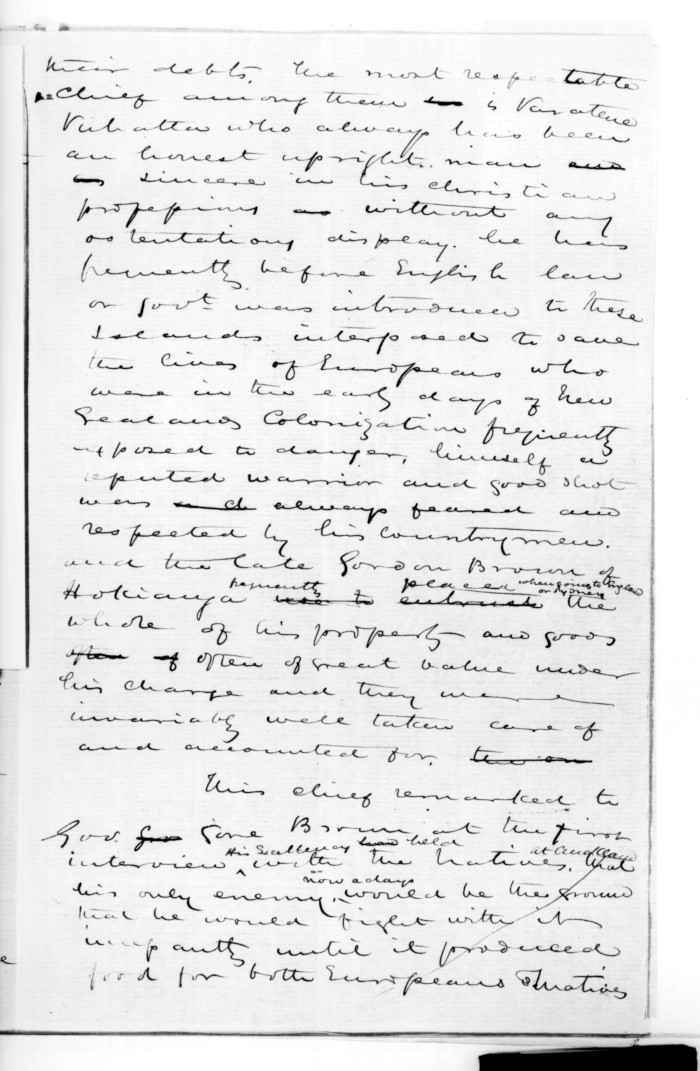 their debts. The most respectable
Chief among them is Varatene
Vuhatta who always has been
an honest upright man and
as sincere in his christian
professions as without any
ostentatious display. he has
frequently before English law
or Govt. was introduced to these
Islands interposed to save
the lives of Europeans who
were in the early days of New
Zealands Colonization frequently
exposed to danger, himself a
reputed warrior and good shot
was and always feared and
respected by his countrymen.
and the late Gordon Brown of
frequently placed when going to England or Sydney
Hokianga use to entrust the
whole of his property and goods
often of often of great value under
his charge and they were
invariably well taken care of
and accounted for.
This chief remarked to
Gov. Gore Brown at the first
His Excellency had held at Auckland
interview with the Natives, that
now a days
his only enemy would be the ground
that he would fight with it
incessantly until it produced
food for both Europeans & natives